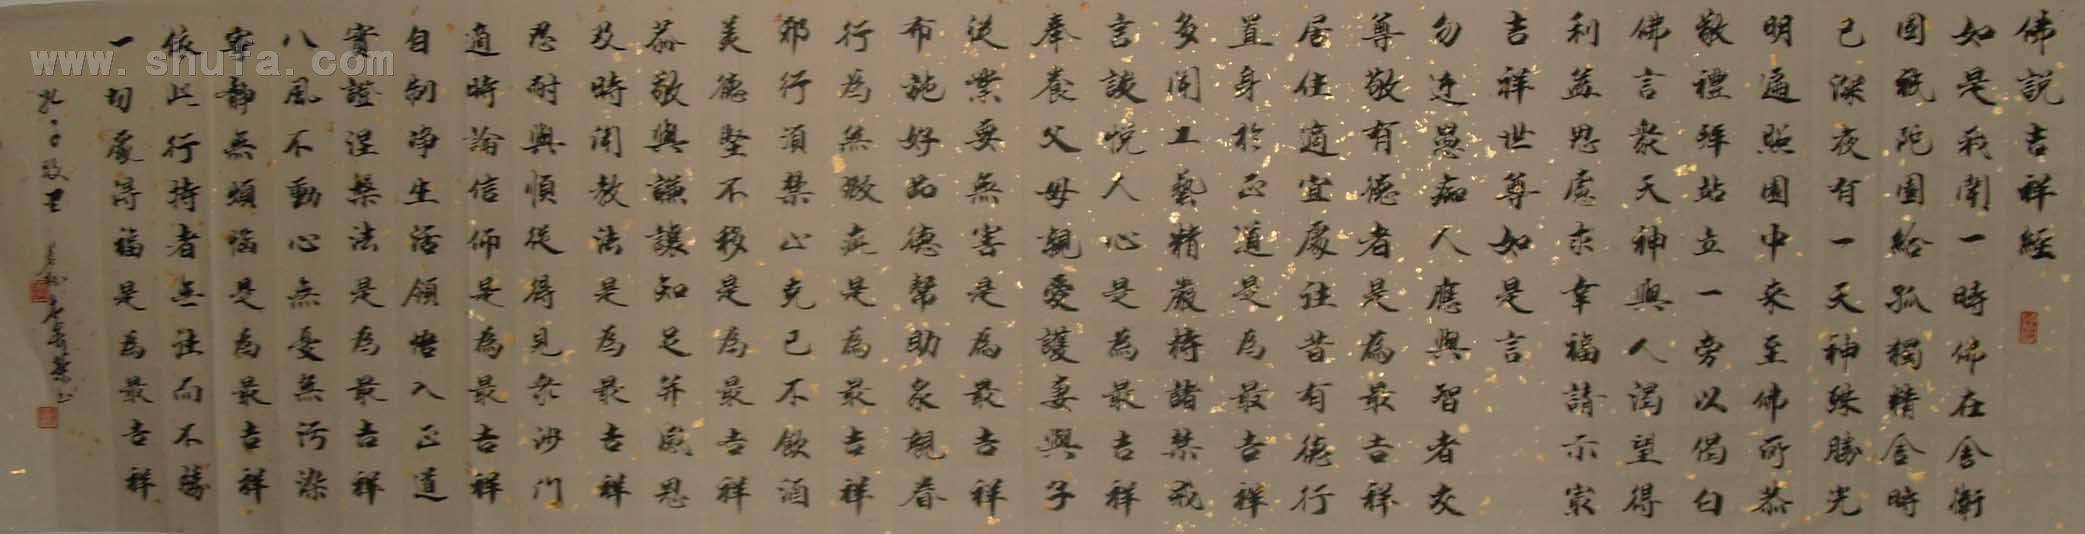 佛説吉祥經
如是我聞一時佛在舍衛
國祇陀園給孤獨精舍時
已深夜有一天神殊勝光
明遍照園中來至佛所恭
敬禮拜站立一旁以偈白
佛言衆天神與人渴望得
利益思慮求幸福請示最
吉祥世尊如是言
勿近愚痴人應與智者交
尊敬有德者是為最吉祥
居住適宜處往昔有德行
置身於正道是為最吉祥
多聞工藝精嚴持諸禁戒
言談悅人心是為最吉祥
奉養父母親愛護妻與子
從業要無害是為最吉祥
布施好品德幫助衆親眷
行為無瑕疵是為最吉祥
邪行須禁止克己不飲酒
美德堅不移是為最吉祥
恭敬與謙讓知足并感恩
及時聞教法是為最吉祥
忍耐與順從得見衆沙門
適時論信仰是為最吉祥
自制淨生活領悟入正道
實證涅槃法是為最吉祥
八風不動心無憂無污染
寧靜無煩惱是為最吉祥
依此行持者無往而不勝
一切處得福是為最吉祥
www.shufa.com